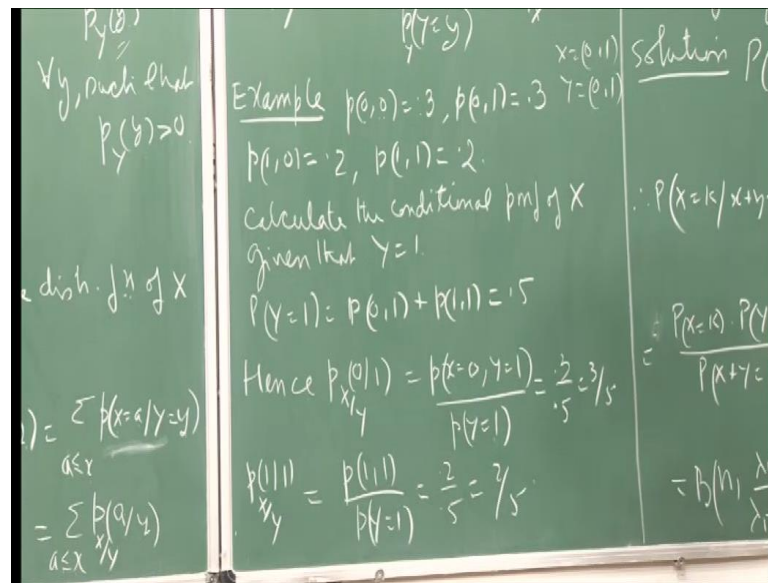 P_Y(y)
∀y, such that
P_Y(y)>0.
e dist. fⁿ of X
) = Σ p(x=a/Y=y)
a≤x
= Σ p(a/y)
a≤x X/Y
P_Y(Y=y)
X=(0,1)
Example p(0,0)=.3, p(0,1)=.3 Y=(0,1)
p(1,0)=.2, p(1,1)=.2.
calculate the conditional pmf of X
given that Y=1.
P(Y=1)= p(0,1)+p(1,1)=.5
Hence p_X/Y(0|1) = p(x=0,Y=1)/p(Y=1) = .2/.5 = 3/5
p_X/Y(1|1) = p(1,1)/p(Y=1) = .2/.5 = 2/5.
Solution P(
∴P(X=k/x+y=
= P(X=k).P(Y
P(X+Y=
= B(n, λ
λ